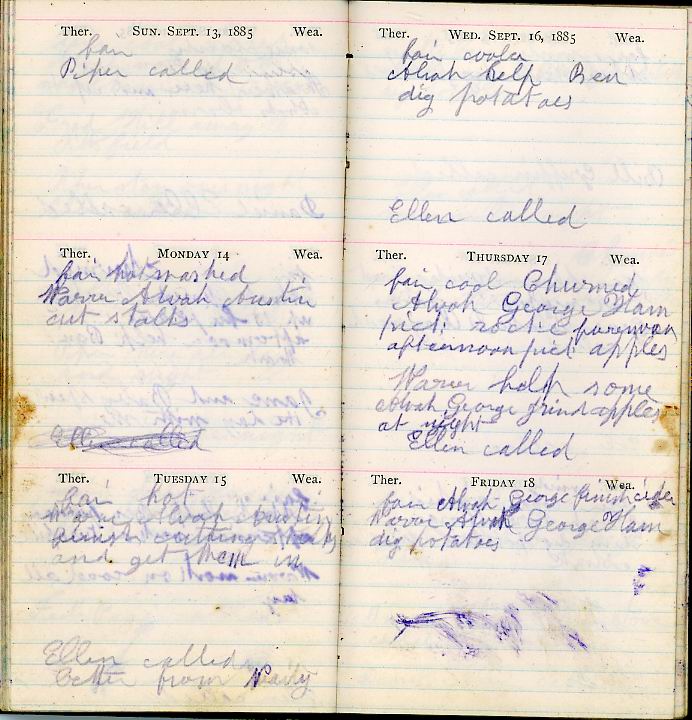 Ther. SUN. SEPT. 13, 1885 Wea.
fair
Piper called
Ther. MONDAY 14 Wea.
fair hot washed
Warner Alvah Austin
cut stalks
Ellen called
Ther. TUESDAY 15 Wea.
fair hot
Alvah Austin
finish cutting stalks
and get them in
Ellen called
letter from
Ther. WED. SEPT. 16, 1885 Wea.
fair cooler
Alvah help Ben
dig potatoes
Ellen called
Ther. THURSDAY 17 Wea.
fair cool Churned
Alvah George Ham
pict rocks forenoon
afternoon pict apples
Warner help some
Alvah George grind apples
at night
Ellen called
Ther. FRIDAY 18 Wea.
fair Alvah George finish cider
Warner Alvah George Ham
dig potatoes